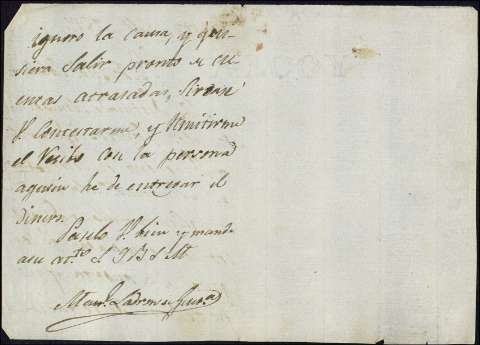 ignoro la causa, y qui-
siera Salir pronto de cu
entas atrasadas, Sirvase
V. Contestarme, y Remitirme
el Recibo con la persona
aquien he de entregar el
Dinero.
Paselo V. bien y mande
asu at.to S Q B S M
Man.l Ladron de